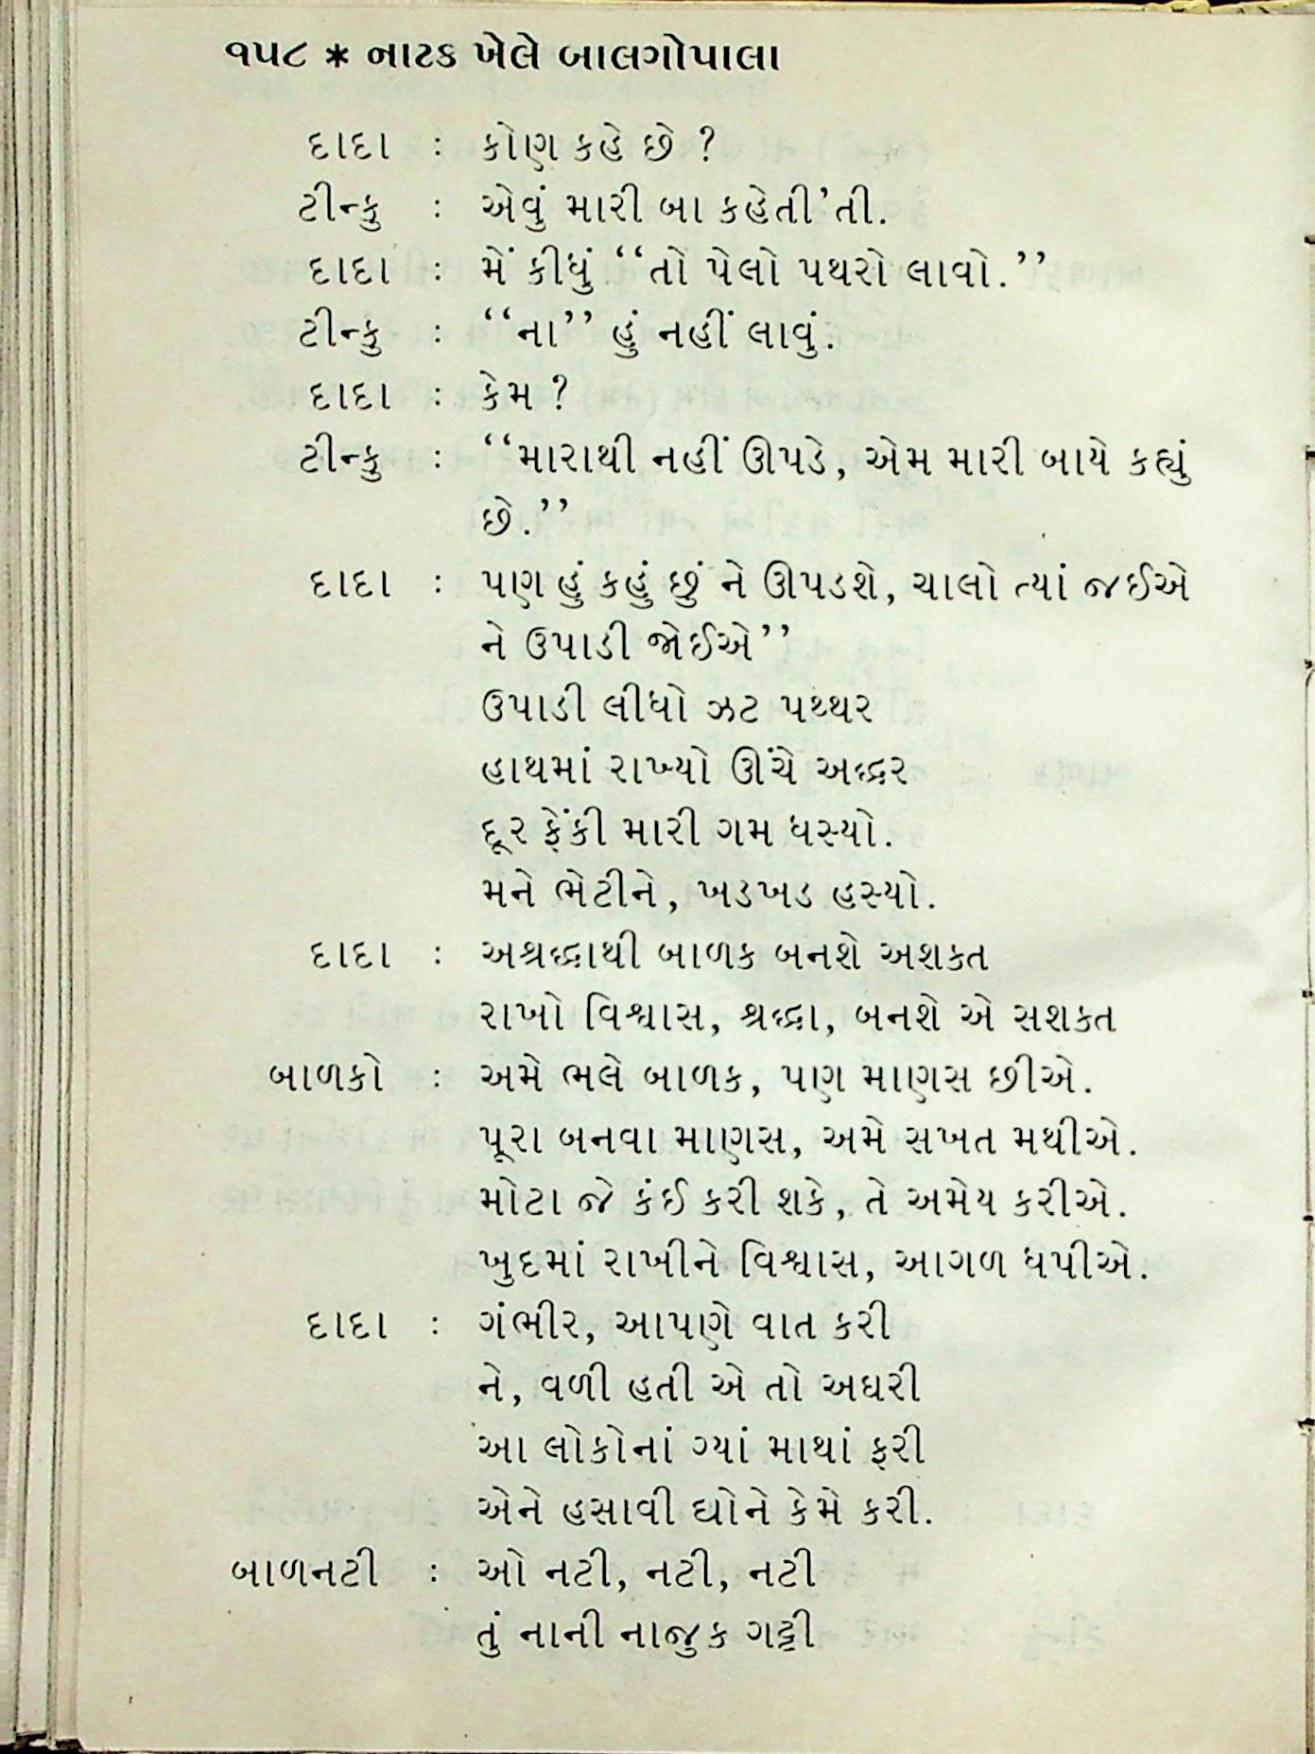 ૧૫૮ * નાટક ખેલે બાલગોપાલા
દાદા : કોણ કહે છે ?
ટીન્કુ : એવું મારી બા કહેતી’તી.
દાદા : મેં કીધું ‘‘તો પેલો પથરો લાવો.’’
ટીન્કુ : ‘‘ના’’ હું નહીં લાવું.
દાદા : કેમ ?
ટીન્કુ : ‘‘મારાથી નહીં ઊપડે, એમ મારી બાયે કહ્યું
છે.’’
દાદા : પણ હું કહું છું ને ઊપડશે, ચાલો ત્યાં જઈએ
ને ઉપાડી જોઈએ’’
ઉપાડી લીધો ઝટ પથ્થર
હાથમાં રાખ્યો ઊંચે અદ્ધર
દૂર ફેંકી મારી ગમ ધસ્યો.
મને ભેટીને, ખડખડ હસ્યો.
દાદા : અશ્રદ્ધાથી બાળક બનશે અશક્ત
રાખો વિશ્વાસ, શ્રદ્ધા, બનશે એ સશક્ત
બાળકો : અમે ભલે બાળક, પણ માણસ છીએ.
પૂરા બનવા માણસ, અમે સખત મથીએ.
મોટા જે કંઈ કરી શકે, તે અમેય કરીએ.
ખુદમાં રાખીને વિશ્વાસ, આગળ ધપીએ.
દાદા : ગંભીર, આપણે વાત કરી
ને, વળી હતી એ તો અઘરી
આ લોકોનાં ગ્યાં માથાં ફરી
એને હસાવી દ્યોને કેમે કરી.
બાળનટી : ઓ નટી, નટી, નટી
તું નાની નાજુક ગટ્ટી